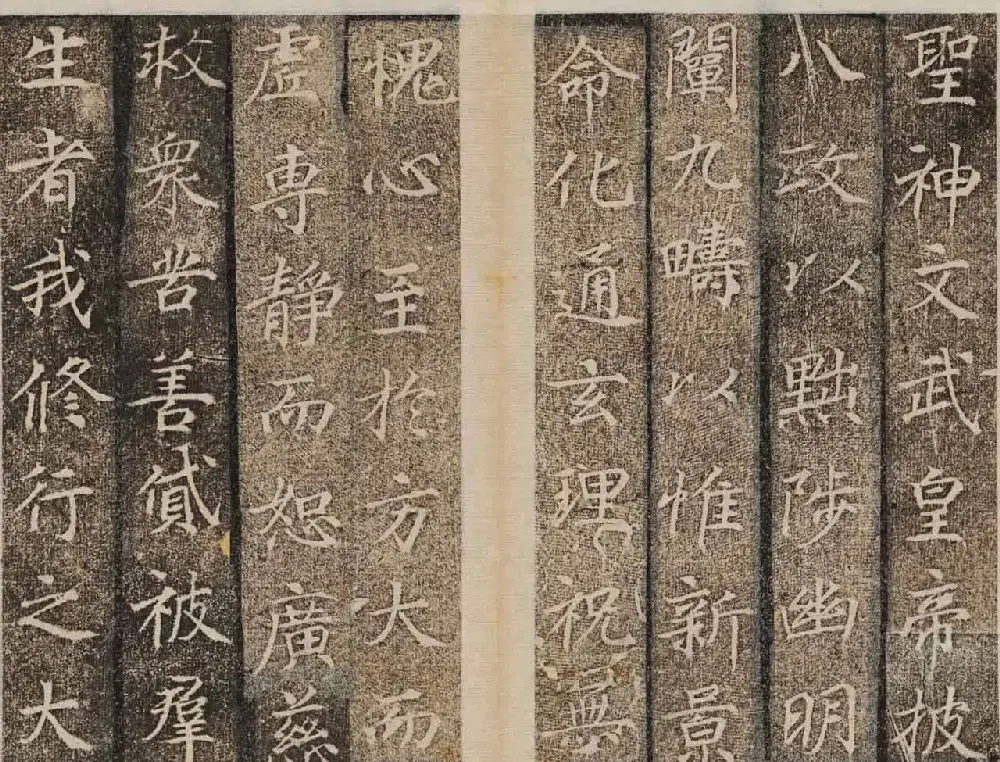 聖神文武皇帝披
八政以黜陟幽明
闡九疇以惟新景
命化通玄理祝無
愧心至於方大而
虛專靜而恕廣慈
救衆苦善貸被羣
生者我修行之大